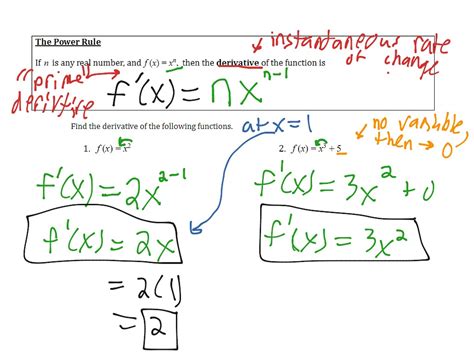 The Power Rule
instantaneous rate of change
If n is any real number, and f(x) = xⁿ, then the derivative of the function is
"prime" derivitive
f'(x) = nxⁿ⁻¹
Find the derivative of the following functions.
at x=1
no variable, then → 0
1. f(x) = x²
f'(x) = 2x²⁻¹
f'(x) = 2x
= 2(1)
= 2
2. f(x) = x³ + 5
f'(x) = 3x² + 0
f'(x) = 3x²